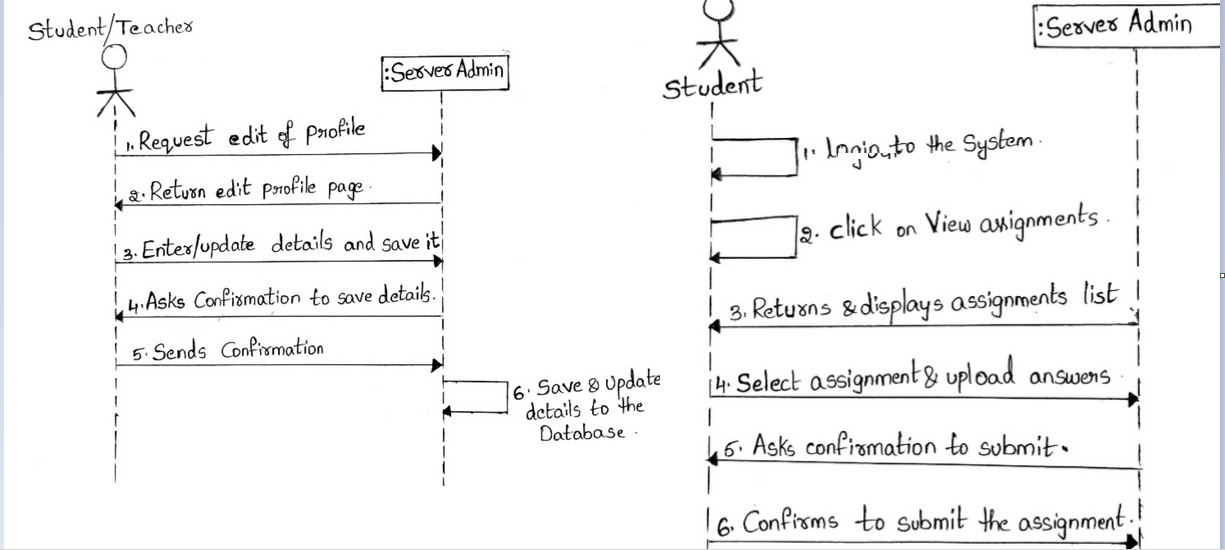 Student/Teacher
:Server Admin
1. Request edit of profile
2. Return edit profile page.
3. Enter/update details and save it
4. Asks Confirmation to save details.
5. Sends Confirmation
6. Save & Update
details to the
Database.
Student
:Server Admin
1. to the System.
2. click on View assignments.
3. Returns & displays assignments list
4. Select assignment & upload answers.
5. Asks confirmation to submit.
6. Confirms to submit the assignment.